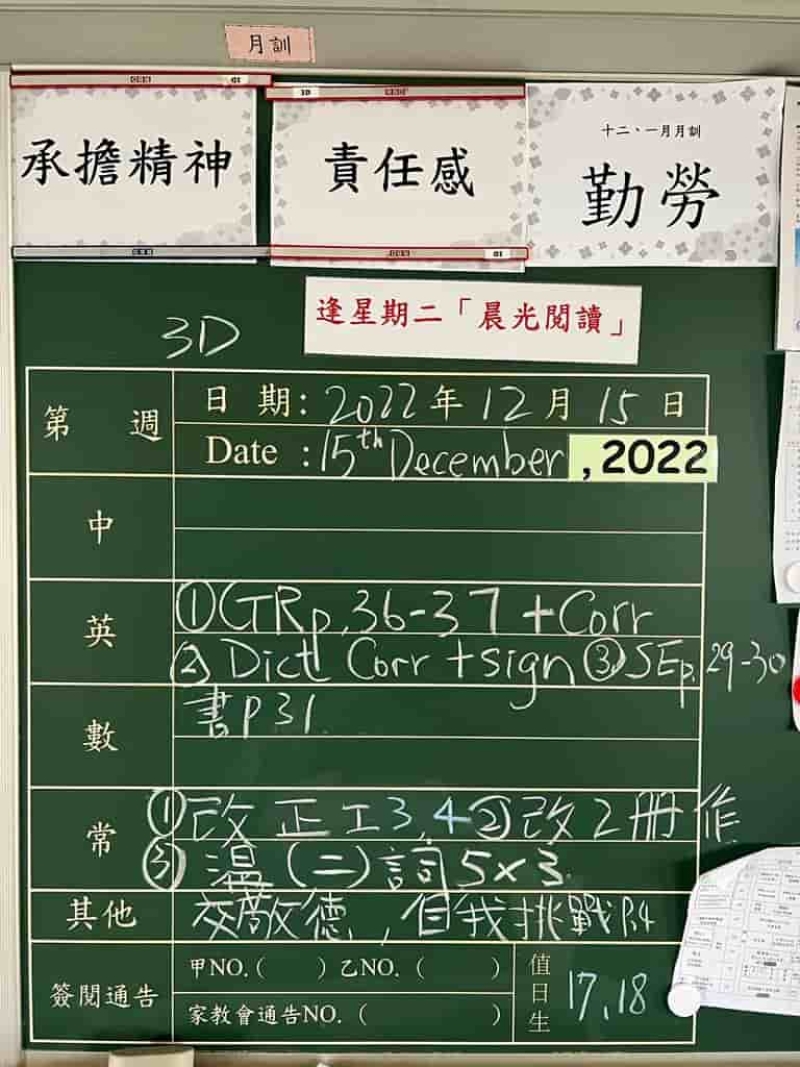 月訓
承擔精神
責任感
十二、一月月訓
勤勞
逢星期二「晨光閱讀」
3D
第 週
日 期: 2022年 12月 15日
Date : 15th December , 2022
中
英
①GRp.36-37 +Corr
② Dict Corr +sign ③SEp.29-30
數
書P31
常
①改正工3,4②改2冊作
③溫(二)詞5×3
其他
交敬德,自我挑戰P.4
簽閱通告
甲NO.( )乙NO.( )
家教會通告NO.( )
值日生
17,18